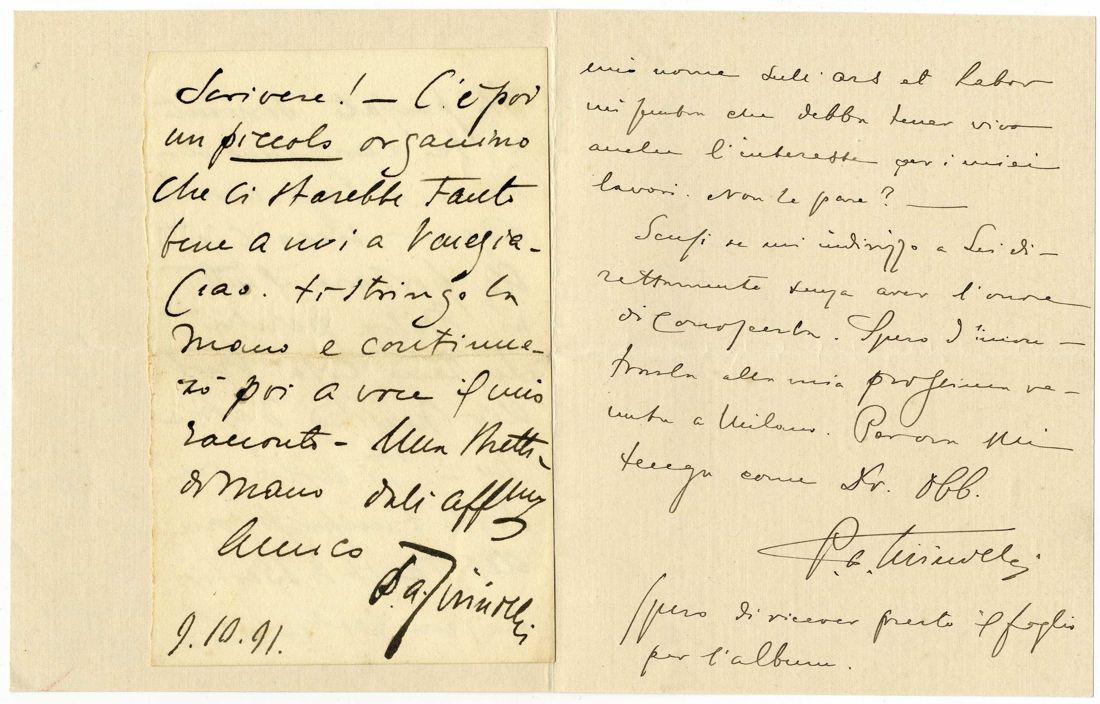 Scrivere! — C'è poi
un piccolo organino
che ci starebbe tanto
bene a noi a Venezia -
Ciao. ti stringo la
mano e continue-
rò poi a voce il mio
racconto - Una stretta
di mano dall' aff.mo
Amico
P. a.
9.10.91.
mio nome sull'ars et labor
mi sembra che debba tener vivo
anche l'interesse per i miei
lavori. Non le pare? —
Scusi se mi indirizzo a Lei di-
rettamente senza aver l'onore
di conoscerla. Spero d'incon-
trarla alla mia prossima ve-
nuta a Milano. Per ora mi
tenga come Dv. Obb.
P. a.
Spero di ricever presto il foglio
per l'album.